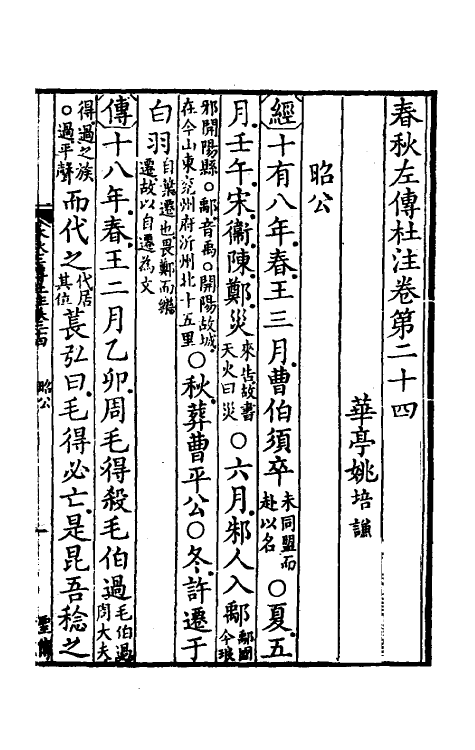 春秋左傳杜注卷第二十四
華亭姚培謙
昭公
經十有八年春王三月曹伯須卒未同盟而赴以名○夏五
月壬午宋衞陳鄭災來告故書天火曰災○六月邾人入鄅鄅國今琅
邪開陽縣○鄅音禹○開陽故城在今山東兗州府沂州北十五里○秋葬曹平公○冬許遷于
白羽自葉遷也畏鄭而樂遷故以自遷為文
傳十八年春王二月乙卯周毛得殺毛伯過毛伯過周大夫
得過之族○過平聲而代之代居其位萇弘曰毛得必亡是昆吾稔之
昭公